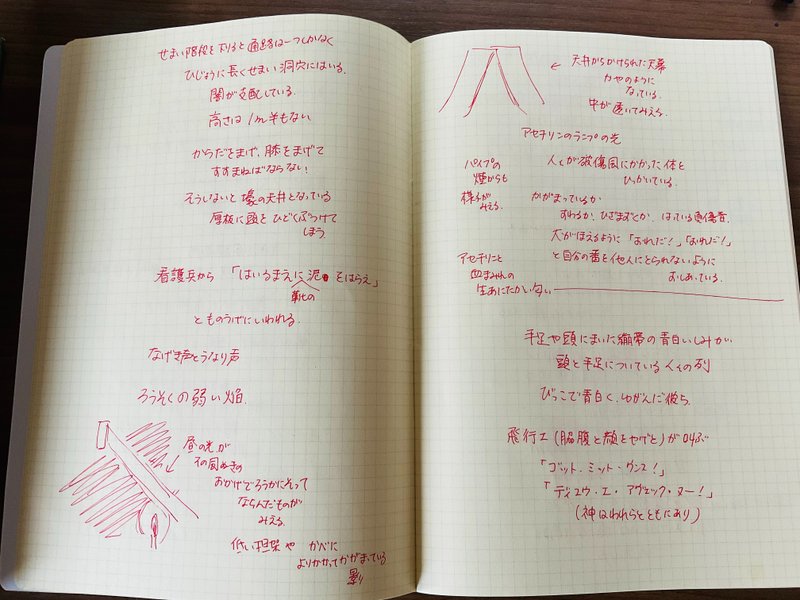 せまい階段を下りると通路は一つしかなく
ひじょうに長くせまい洞穴にはいる。
闇が支配している。
高さは1m半もない
からだをまげ、膝をまげて
すすまねばならない!
そうしないと壕の天井となっている
厚板に頭をひどくぶつけて
しまう
看護兵から「はいるまえに泥をはらえ」
靴の
とものうげにいわれる。
なげき声とうなり声
ろうそくの弱い焔
昼の光が
その風ぬきの
おかげでろうかにそって
ならんだものが
みえる。
低い担架や かべに
よりかかってかがまっている
影
← 天井からかけられた天幕
かやのように
なっている。
中が透いてみえる。
アセチリンのランプの光
パイプの
煙からも
様子が
みえる。
人々が破傷風にかかった体と
ひっかいている。
かがまっているか
すわるか、ひざまずくか、はっている負傷者。
犬がほえるように「おれだ!」「おれだ!」
と自分の番を他人にとられないように
おしあっている。
アセチリンと
血まみれの
生あたたかい匂い
手足や頭にまいた繃帯の青白いしみが
頭と手足についている人々の列
びっこで青白く、ゆがんだ彼ら。
飛行士(脇腹と顔をやけど)が叫ぶ
「ゴット・ミット・ウンス!」
「ディユウ・エ・アヴェック・ヌー!」
(神はわれらとともにあり)